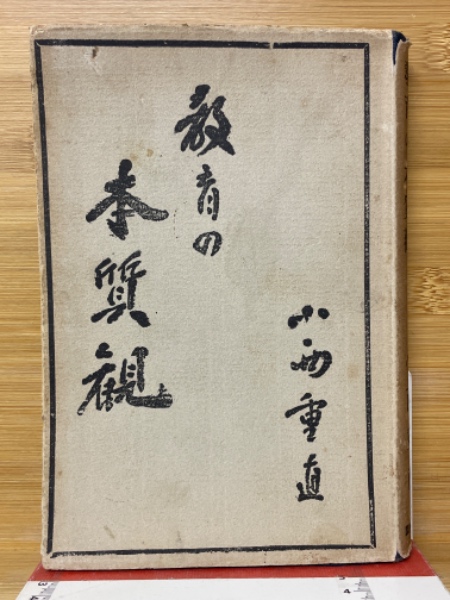 小西重直
教育の
本質観